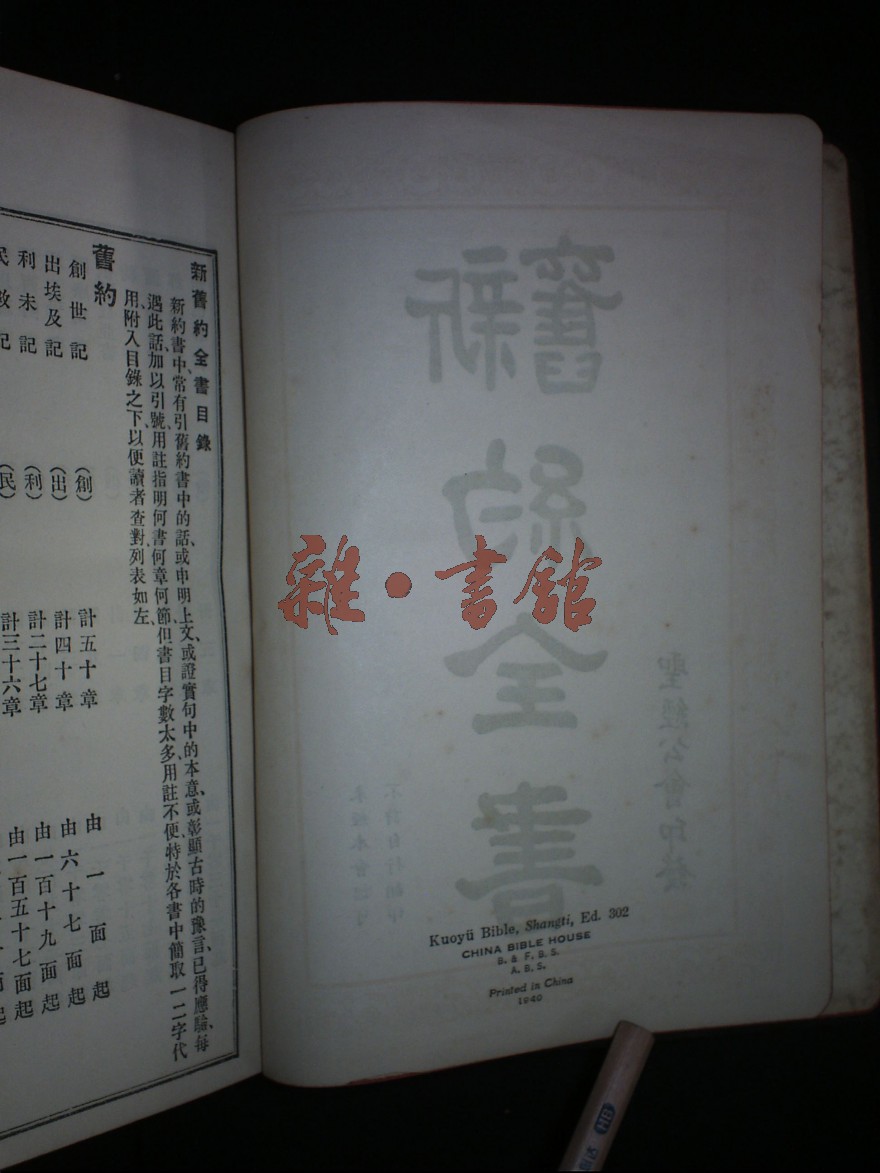 新舊約全書目錄
新約書中、常有引舊約書中的話、或申明上文、或證實句中的本意、或彰顯古時的豫言、已得應驗、每
遇此話、加以引號、用註指明何書何章何節、但書目字數太多、用註不便、特於各書中簡取一二字代
用、附入目錄之下、以便讀者查對、列表如左、
舊約
創世記 (創) 計五十章 由一面起
出埃及記 (出) 計四十章 由六十七面起
利未記 (利) 計二十七章 由一百十九面起
民數記 (民) 計三十六章 由一百五十七面起
舊新
約全書
聖經公會印發
雜·書館
Kuoyü Bible, Shangti, Ed. 302
CHINA BIBLE HOUSE
B. & F. B. S.
A. B. S.
Printed in China
1940
HB